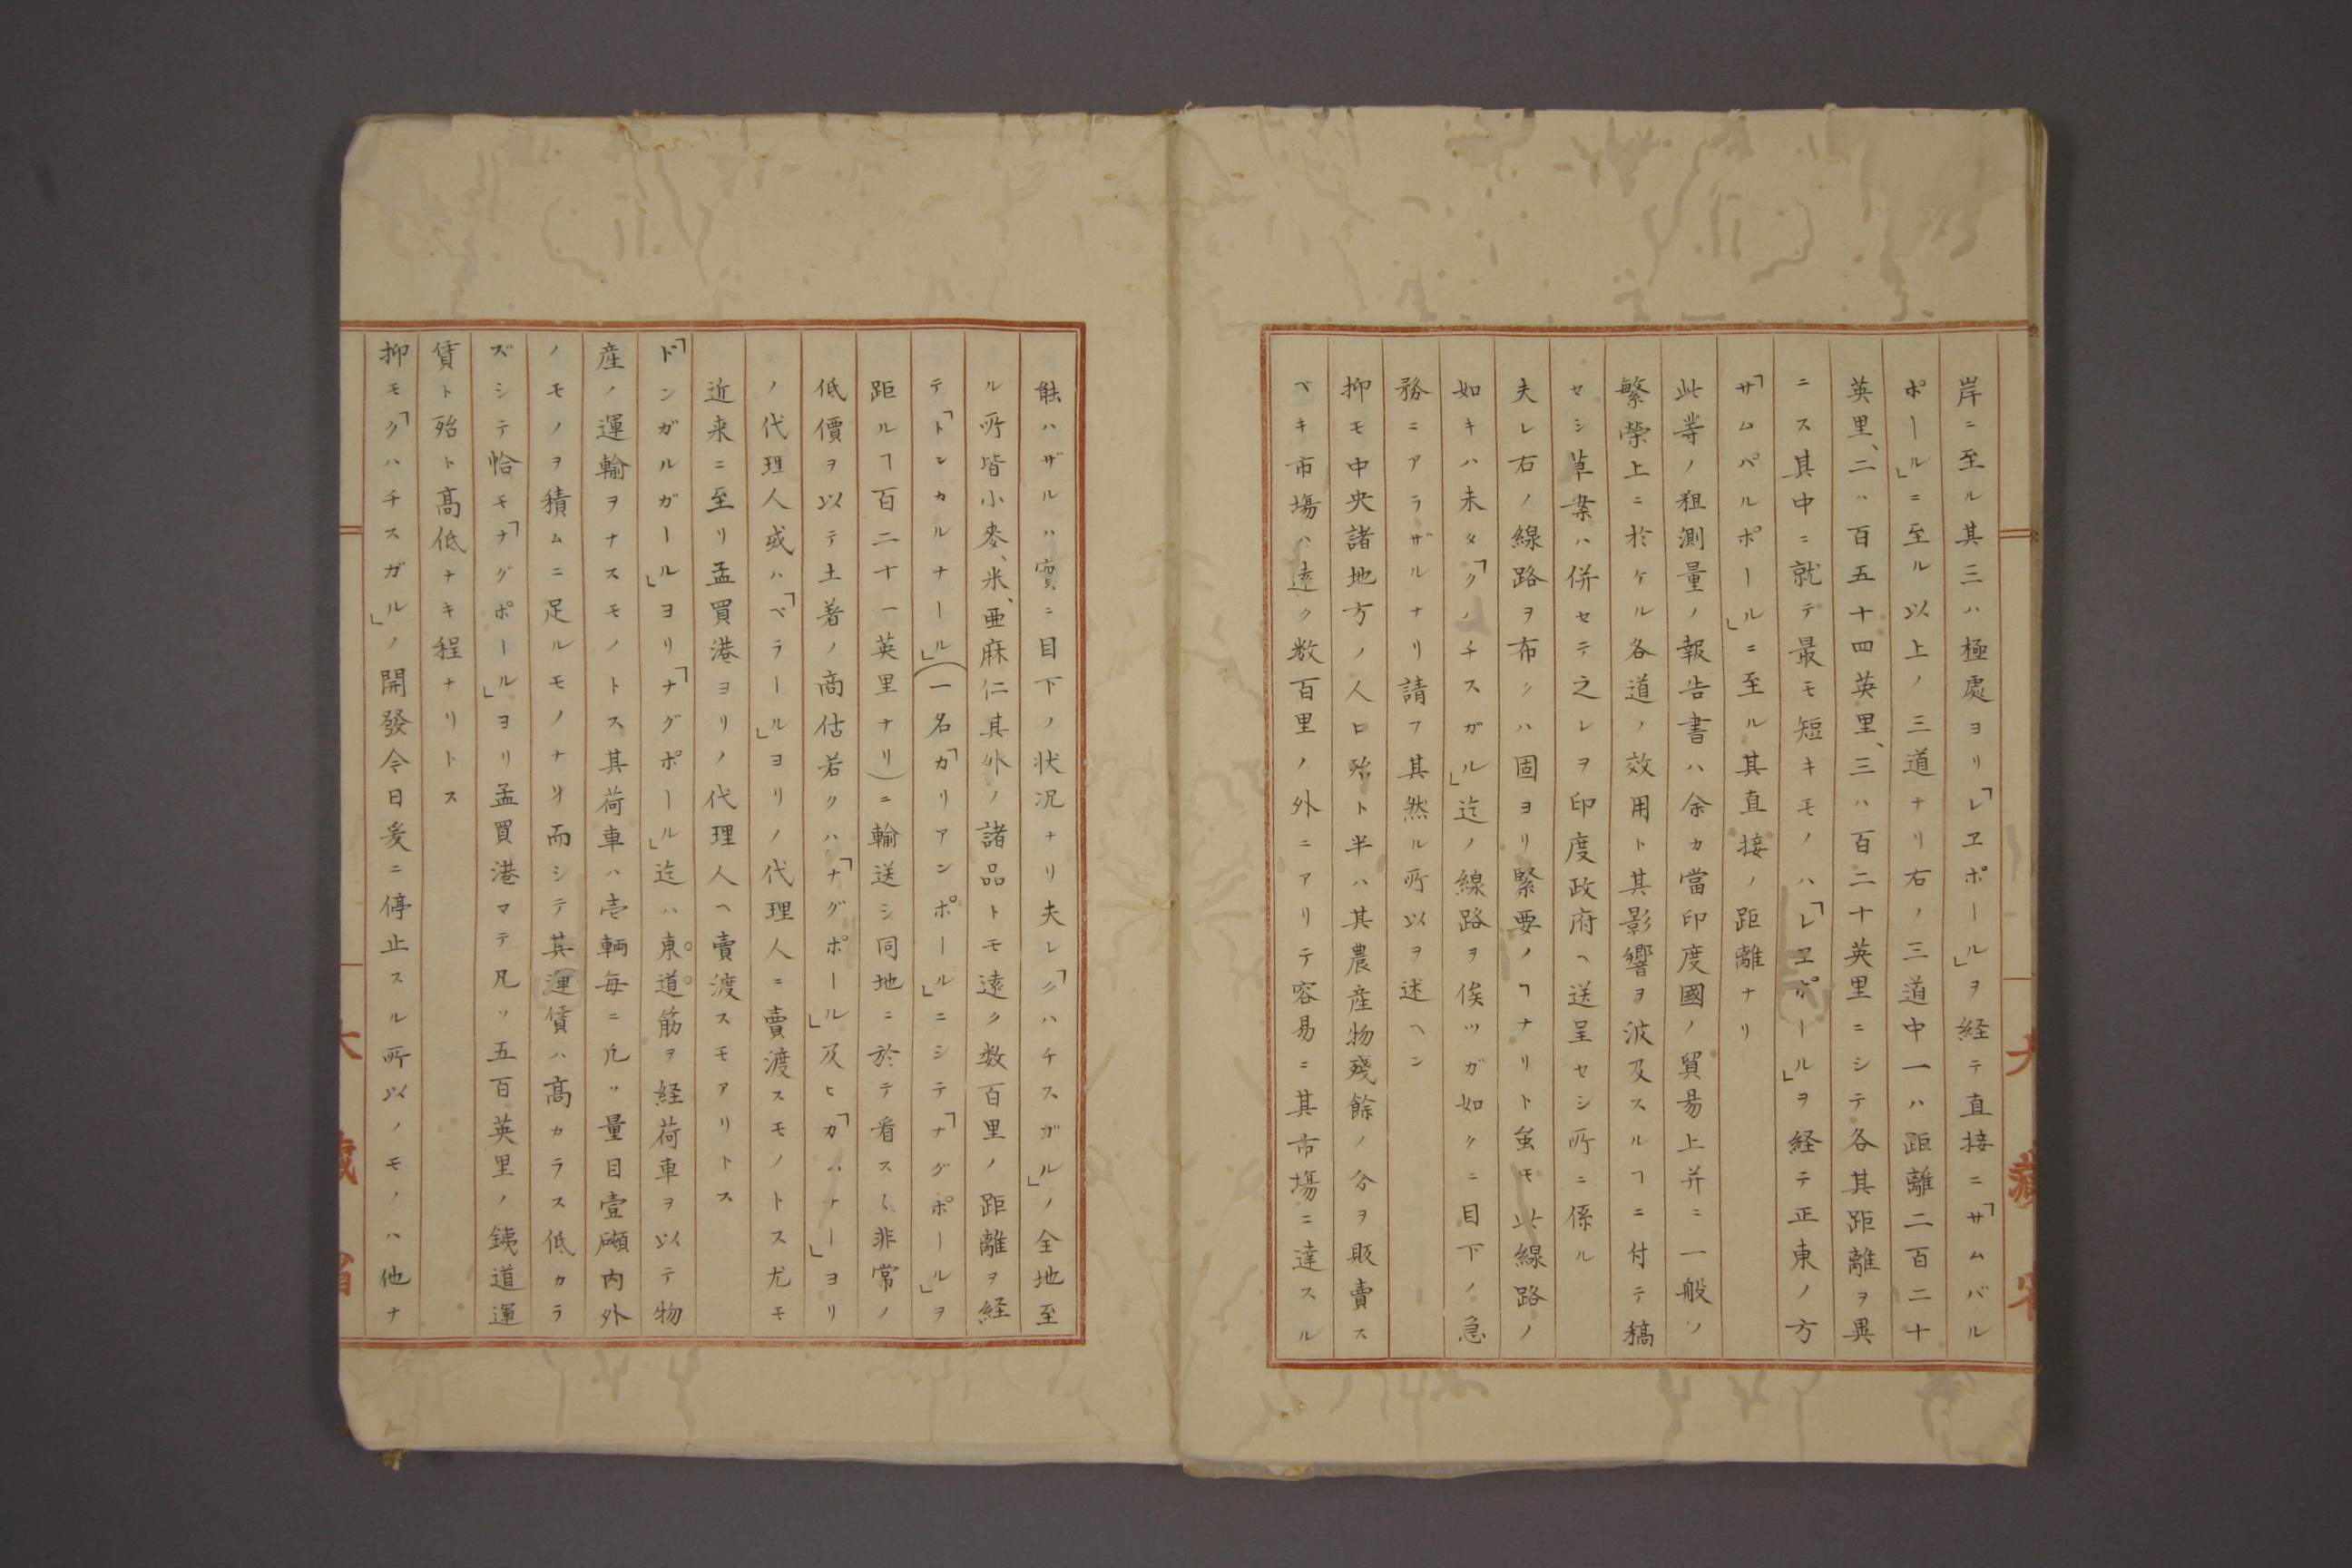 岸ニ至ル其三ハ極處ヨリ「レヱポール」ヲ経テ直接ニ「サムバル
ポール」ニ至ル以上ノ三道ナリ右ノ三道中一ハ距離二百二十
英里、二ハ百五十四英里、三ハ百二十英里ニシテ各其距離ヲ異
ニス其中ニ就テ最モ短キモノハ「レヱポール」ヲ経テ正東ノ方
「サムパルポール」ニ至ル其直接ノ距離ナリ
此等ノ粗測量ノ報告書ハ余カ當印度國ノ貿易上并ニ一般ノ
繁榮上ニ於ケル各道ノ效用ト其影響ヲ波及スルヿニ付テ稿
セシ草案ハ併セテ之レヲ印度政府ヘ送呈セシ所ニ係ル
夫レ右ノ線路ヲ布クハ固ヨリ緊要ノヿナリト虽モ此線路ノ
如キハ未タ「クノチスガル」迄ノ線路ヲ俟ツガ如クニ目下ノ急
務ニアラザルナリ請フ其然ル所以ヲ述ヘン
抑モ中央諸地方ノ人口殆ト半ハ其農産物殘餘ノ分ヲ販賣ス
ベキ市場ハ遠ク数百里ノ外ニアリテ容易ニ其市場ニ達スル
能ハザルハ實ニ目下ノ状况ナリ夫レ「クハチスガル」ノ全地至
ル所皆小麥、米、亜麻仁其外ノ諸品トモ遠ク数百里ノ距離ヲ経
テ「トンカルナール」(一名「カリアンポール」ニシテ「ナグポール」ヲ
距ルヿ百二十一英里ナリ)ニ輸送シ同地ニ於テ看ス〱非常ノ
低價ヲ以テ土著ノ商估若クハ「ナグポール」及ヒ「カハナー」ヨリ
ノ代理人或ハ「ベラール」ヨリノ代理人ニ賣渡スモノトス尤モ
近来ニ至リ孟買港ヨリノ代理人ヘ賣渡スモアリトス
「ドンガルガール」ヨリ「ナグポール」迄ハ東道筋ヲ経荷車ヲ以テ物
産ノ運輸ヲナスモノトス其荷車ハ壱輌毎ニ凡ッ量目壹噸内外
ノモノヲ積ムニ足ルモノナリ而シテ其運賃ハ髙カラス低カラ
ズシテ恰モ「ナグポール」ヨリ孟買港マテ凡ッ五百英里ノ銕道運
賃ト殆ト髙低ナキ程ナリトス
抑モ「クハチスガル」ノ開發今日爰ニ停止スル所以ノモノハ他ナ
大藏省